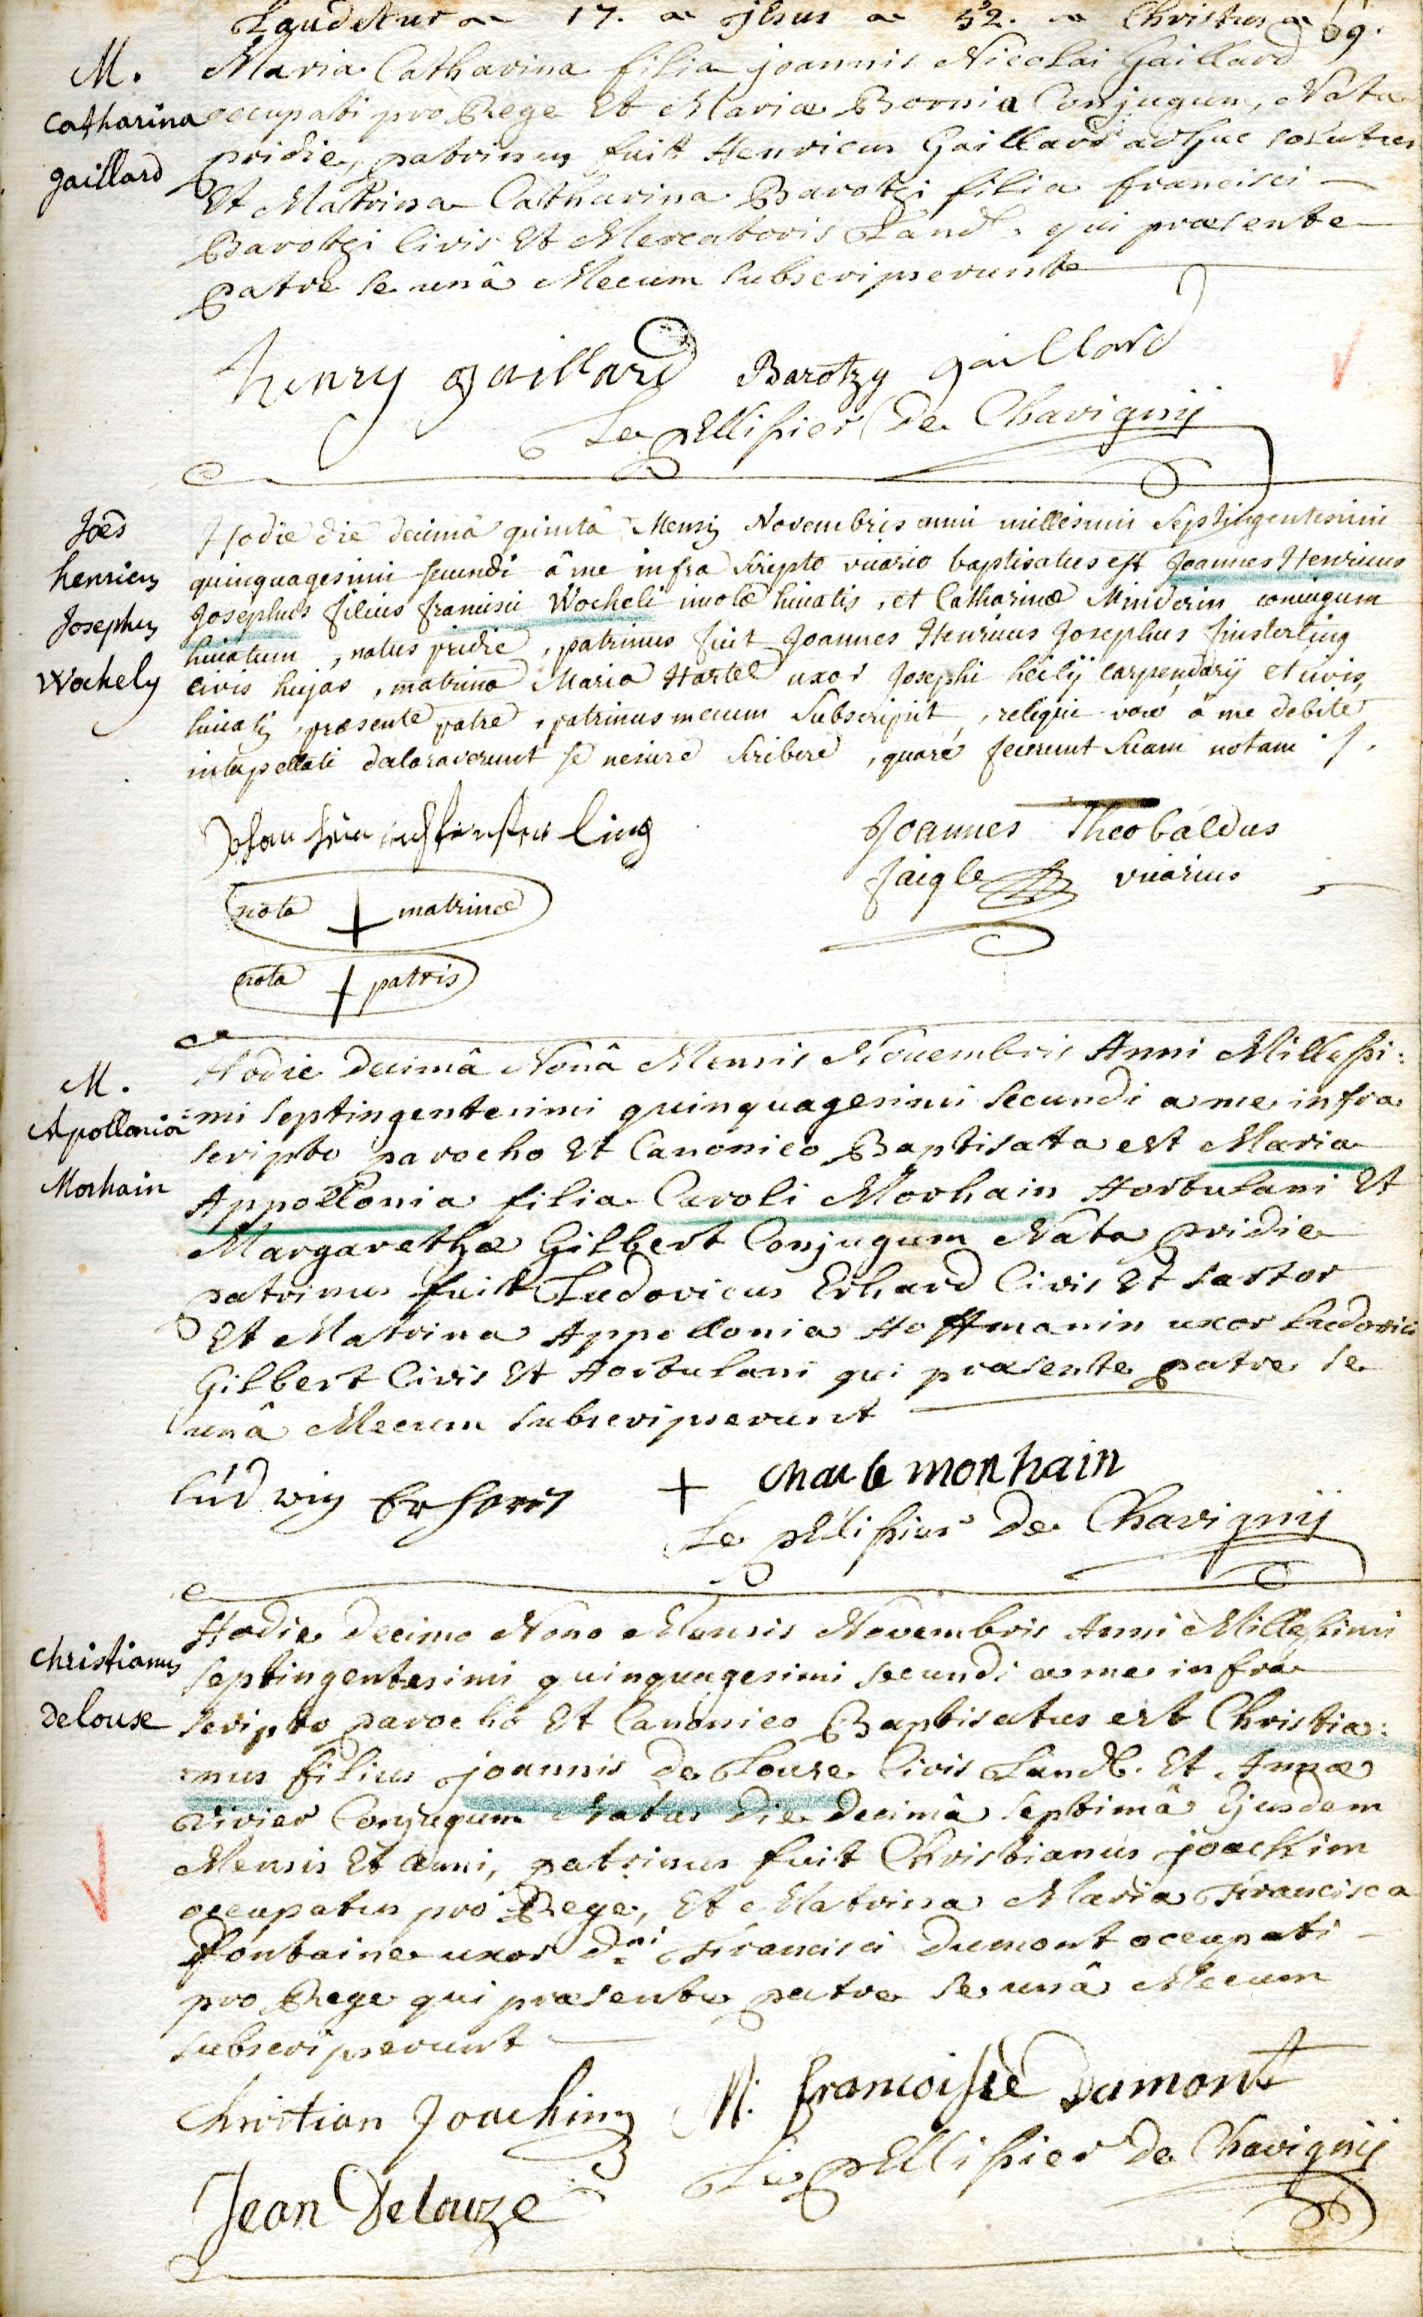 Laudetur 17. Jesus 52. Christus 69.
M.
Catharina
gaillard
Maria Catharina filia joannis Nicolai Gaillard
occupati pro Rege Et Mariæ Bornia Conjugum, Nata
pridie, patrinus fuit Henricus Gaillard adhuc solutus
Et Matrina Catharina Barotzi filia francisci
Barotzi Civis Et Mercatoris Land. qui præsente
patre se unâ Mecum subscripserunt
henry gaillard Barotzy gaillard
Le pellissier De Chavignij
Joês
henricus
Josephus
Wochely
Hodie die decimâ quintâ Mensis Novembris anni millesimi Septingentesimi
quinquagesimi secundi â me infra scripto vicario baptisatus est Joannes Henricus
Josephus filius francisci Wocheli incolæ huiatis, et Catharinæ Minderin coniugum
huiatum, natus pridie, patrinus fuit Joannes Henricus Josephus finsterling
civis hujas, matrina Maria Hartel uxor Josephi heilij carpentarij et civis
huiatis, præsente patre, patrinus mecum subscripsit, reliqui vero â me debite
interpellati declaraverunt se nescire scribere, quare fecerunt suam notam
ling
Joannes Theobaldus
faigle vicarius
nota + matrinæ
nota + patris
M.
Apollonia
Morhain
Hodie Decimâ Nonâ Mensis Novembris Anni Millessi:
:mi septingentesimi quinquagesimi secundi a me infra
scripto parocho Et Canonico Baptisata est Maria
Appollonia filia Caroli Morhain Hortulani Et
Margarethæ Gilbert Conjugum Nata pridie
patrinus fuit Ludovicus Erhard Civis Et sartor
Et Matrina Appollonia Hoffmanin uxor Ludovici
Gilbert Civis Et Hortulani qui præsente patre se
unâ Mecum subscripserunt
Lúdwig Erhard + Charle monhain
Le pellissier De Chavignij
Christianus
Delouse
Hodie Decimo Nono Mensis Novembris Anni Millessimi
septingentesimi quinquagesimi secundi a me infra
scripto parocho Et Canonico Baptisatus est Christia:
:nus filius joannis De Louse Civis Land. Et Annæ
Vivier Conjugum Natus Die Decimâ septimâ Ejusdem
Mensis Et anni, patrinus fuit Christianus joachim
occupatus pro Rege, Et Matrina Maria Francisca
Fontaine uxor Dni Francisci Dumont occupati
pro Rege qui præsente patre se unâ Mecum
subscripserunt
Christian Joaching M. francoisse Dumont
Le pellissier De Chavignij
Jean Delouze